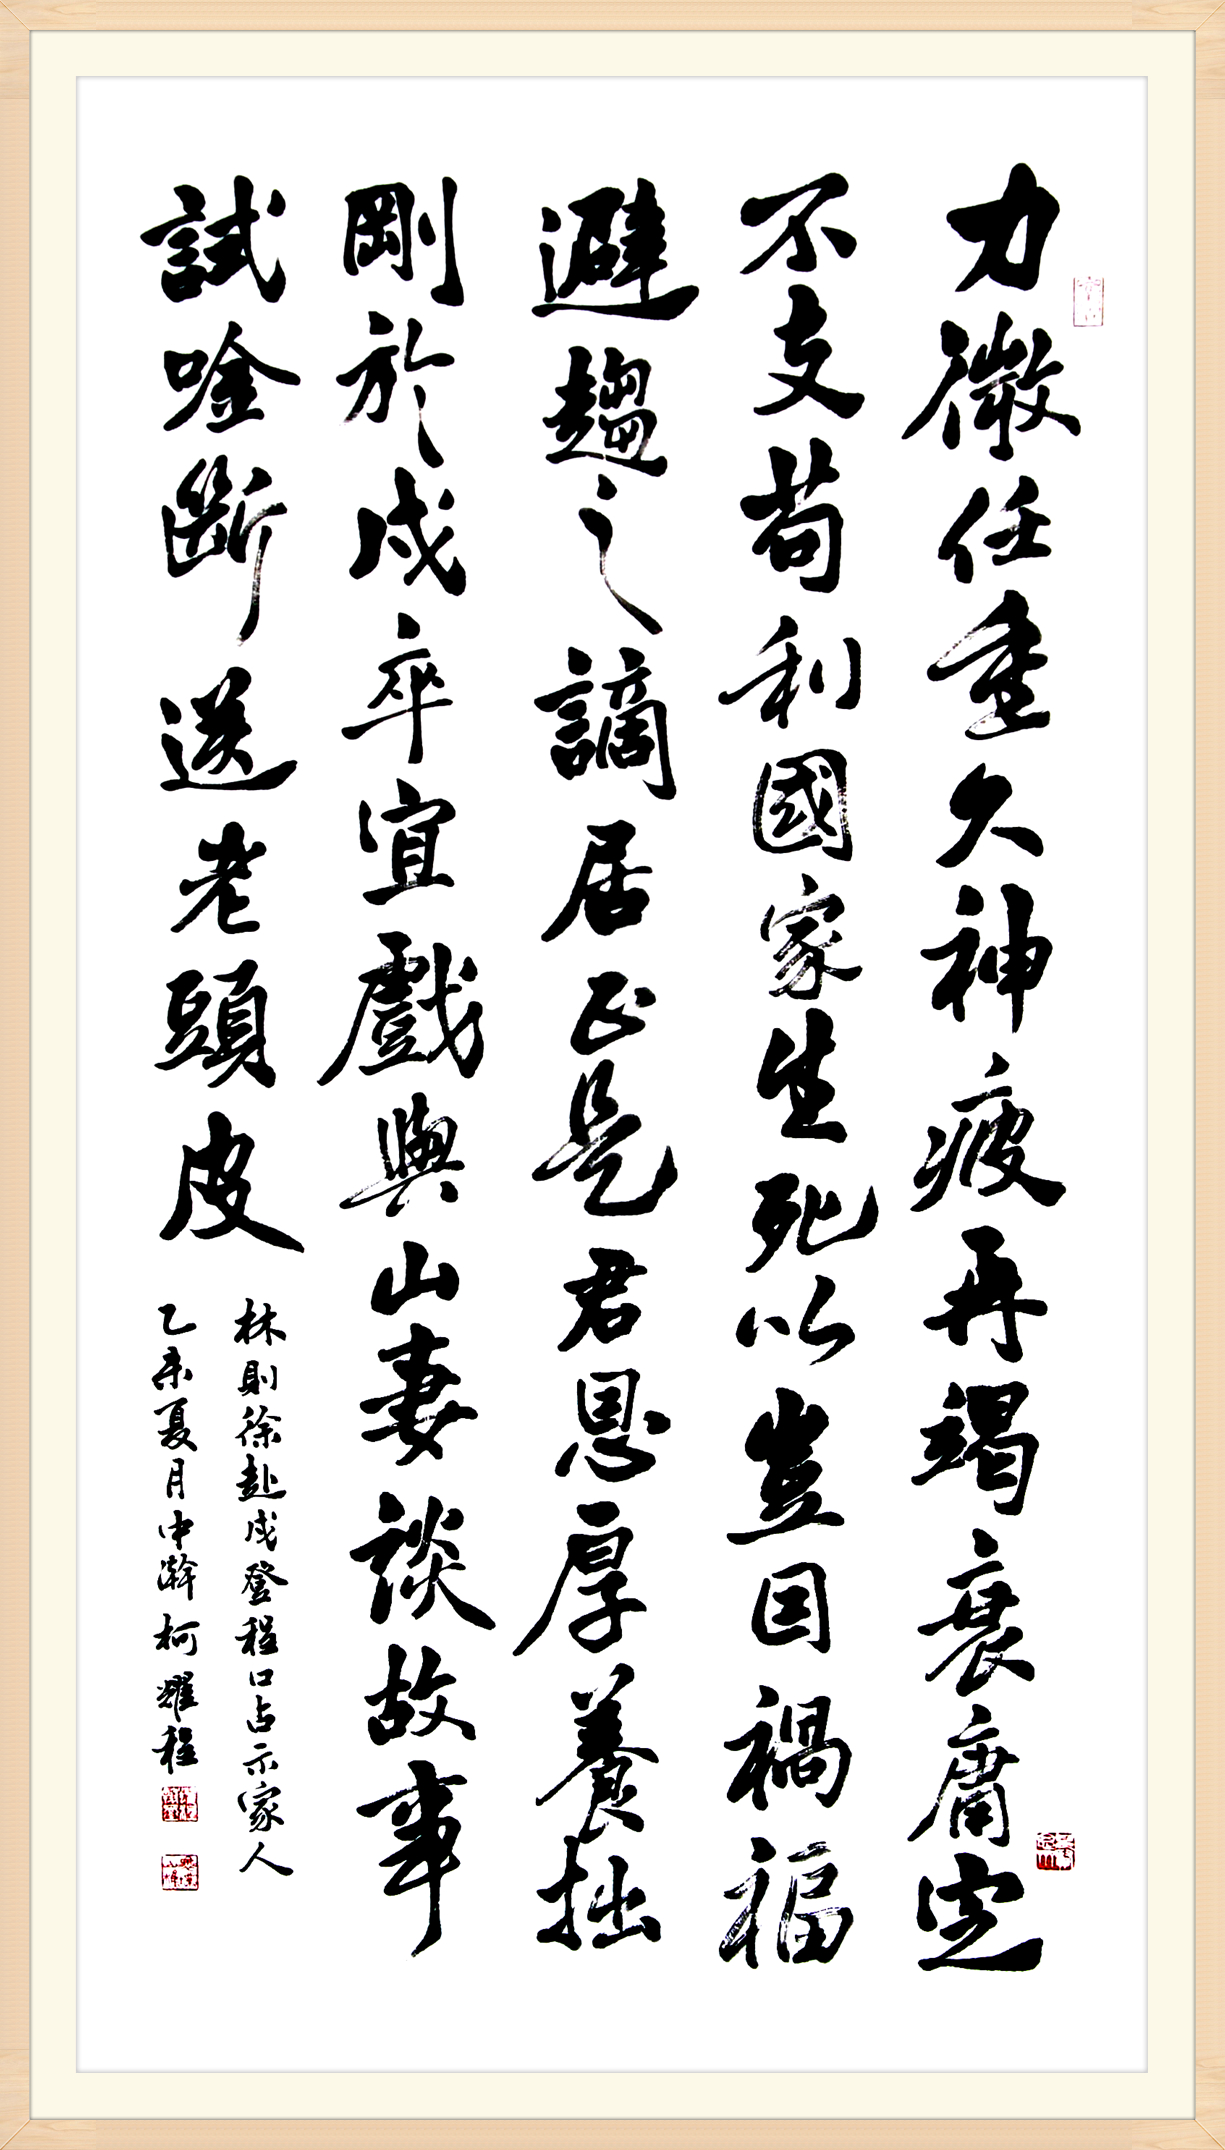 力微任重久神疲再竭衰庸定
不支苟利國家生死以豈因禍福
避趨之謫居正是君恩厚養拙
剛於戍卒宜戲與山妻談故事
試唫斷送老頭皮
林則徐赴戍登程口占示家人
乙未夏月中澣柯耀程